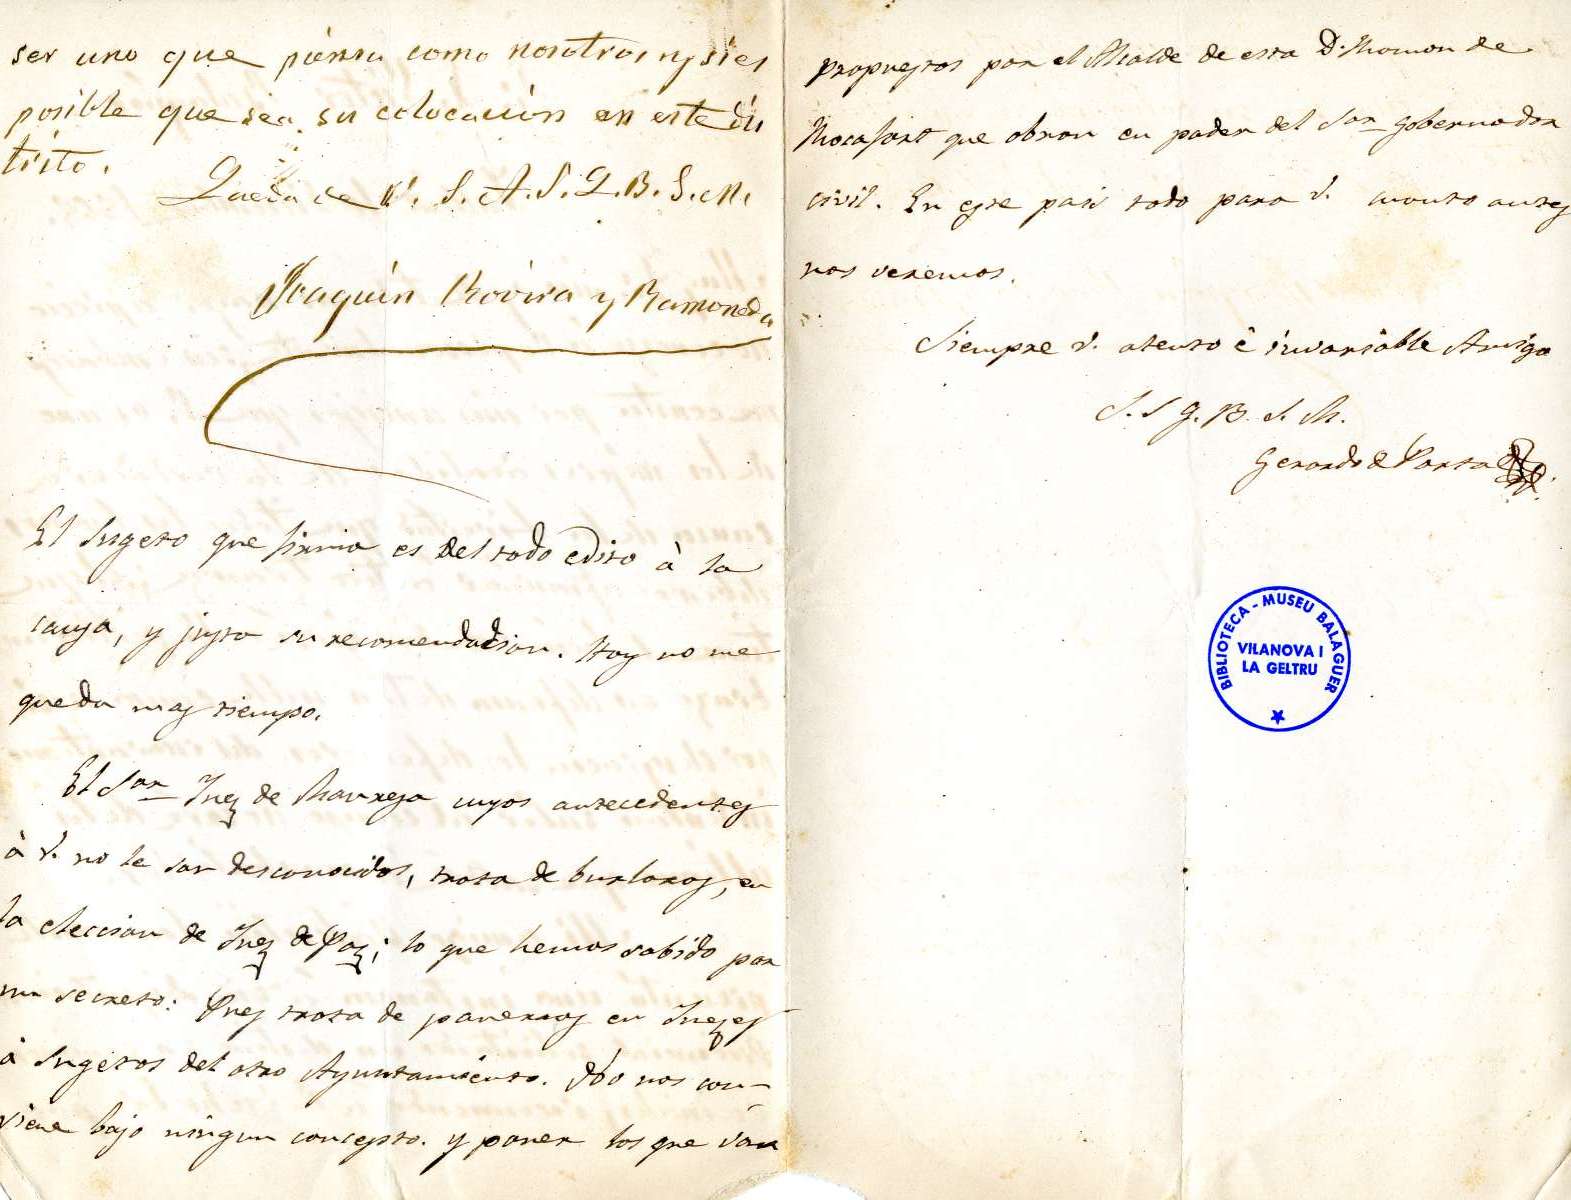 ser uno que piensa como nosotros y si es
posible que sea su colocación en este dis
trito.
Queda de V. S. A. S. Q. B. S. M.
Joaquín Rovira y Ramoneda
El sugeto que firma es del todo adito à la
causa, y justa su recomendacion. Hoy no me
queda mas tiempo.
El Sor Juez de Manresa cuyos antecedentes
à V. no le son desconocidos, trata de burlarnos, en
la eleccion de Juez de Paz; lo que hemos sabido por
un secreto: Pues trata de ponernos en Juezes
à sugetos del otro Ayuntamiento. No nos con-
viene bajo ningun concepto. y poner los que van
propuestos por el Alcalde de esta D. Ramon de
Rocafort que obran en poder del Sor Gobernador
civil. En este pais todo para V. cuanto antes
nos veremos.
Siempre V. atento è invariable Amigo
S. S. Q. B. S. M.
Gerardo de Porta
BIBLIOTECA - MUSEU BALAGUER
VILANOVA I
LA GELTRU